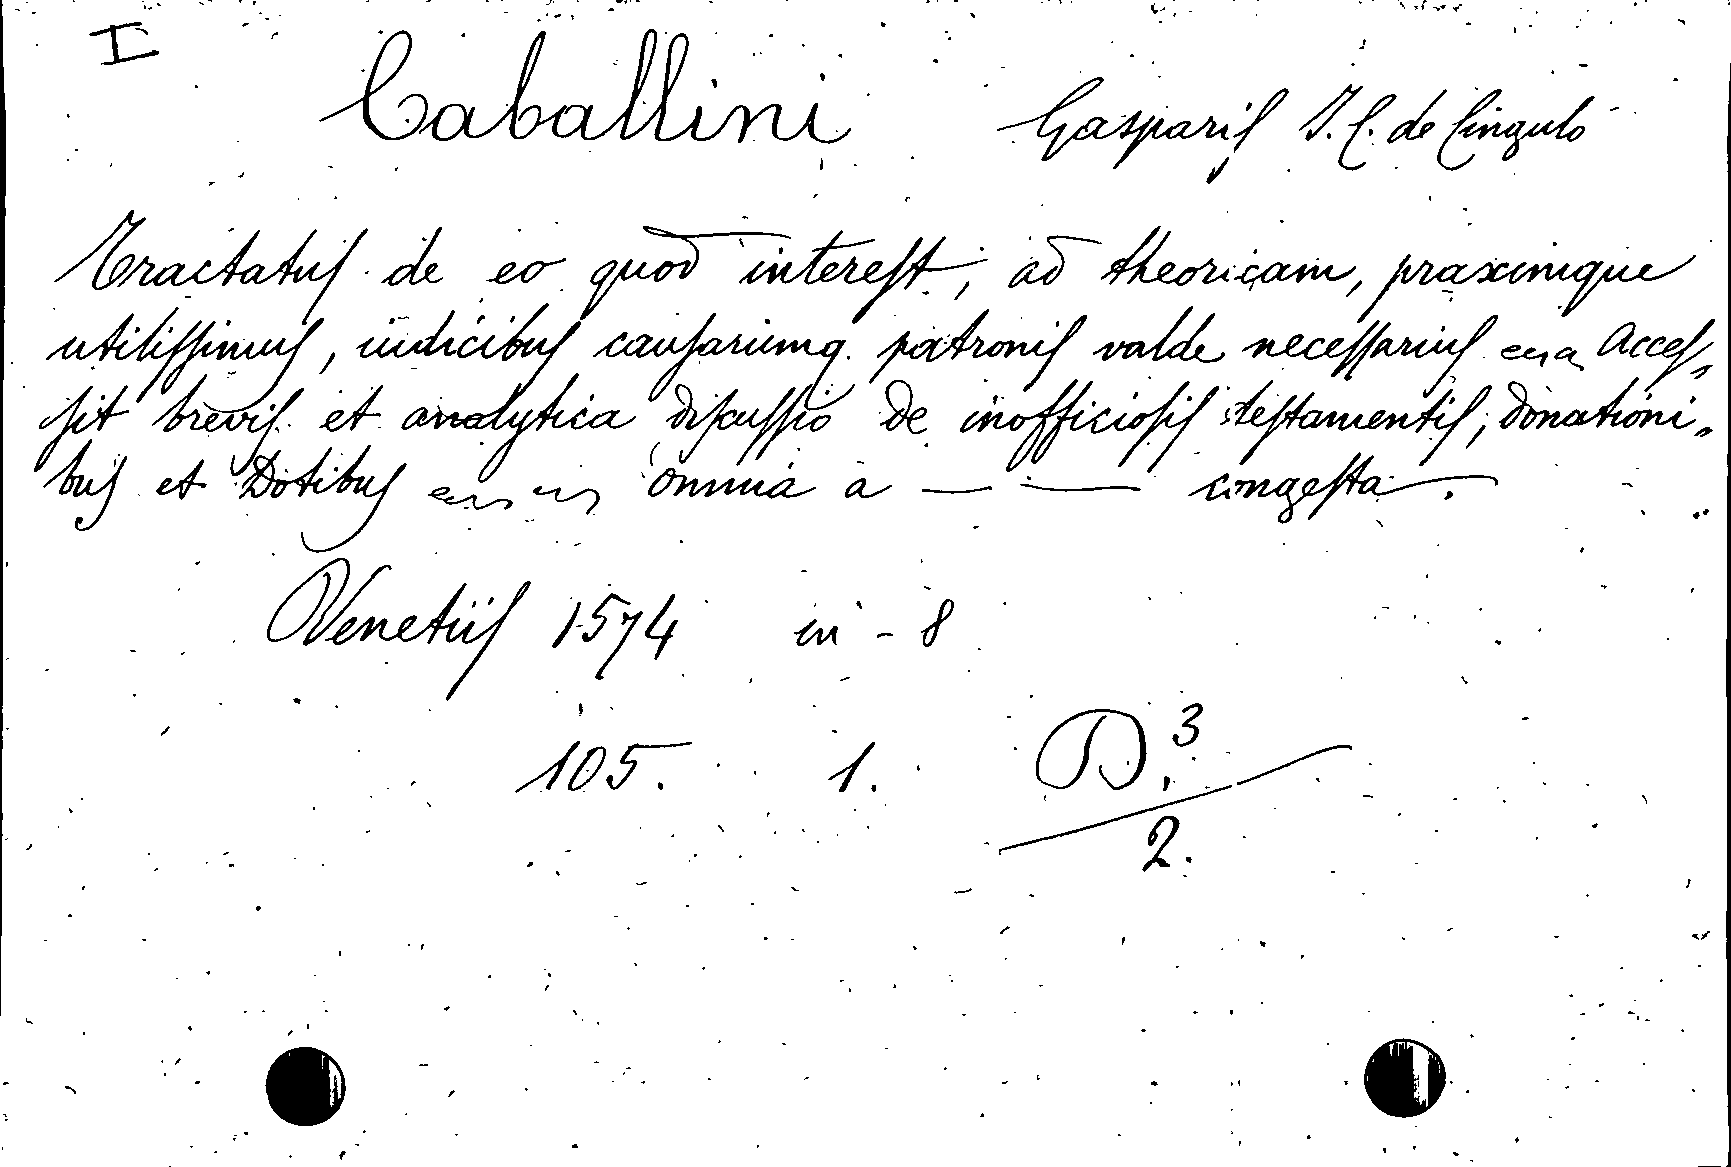 I
Caballini Gasparis J. C. de Cingulo
Tractatus de eo quod interest, ad theoricam, praximque
utilissimus, iudicibus causarumq. patronis valde necessarius Acces„
sit brevis et analytica discussio de inofficiosis testamentis, donationi„
bus et Dotibus omnia a — — congesta.
Venetiis 1574 in - 8
105. 1. D.3
2.